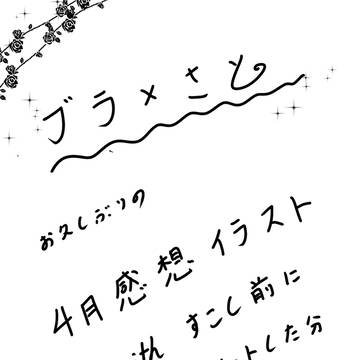 ブラ×さと
お久しぶりの
4月感想イラスト
すこし前に
した分